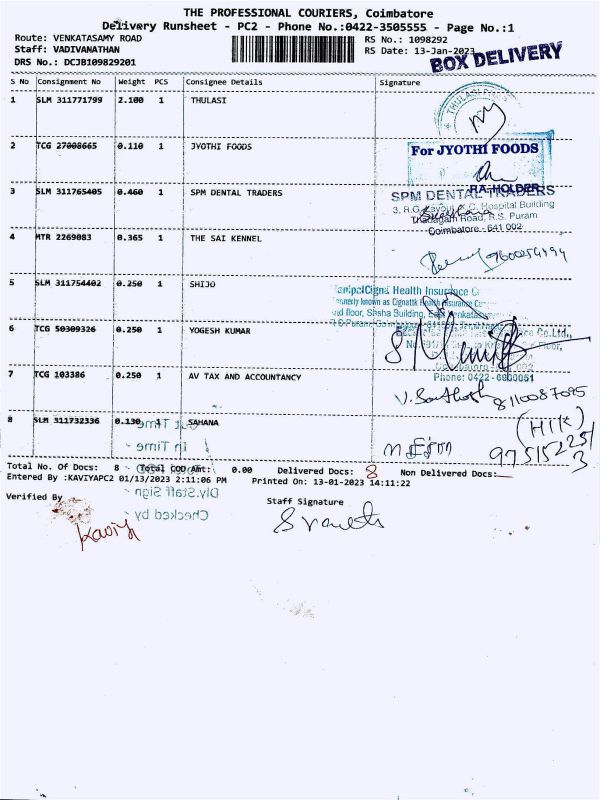 THE PROFESSIONAL COURIERS, Coimbatore
Delivery Runsheet - PC2 - Phone No.:0422-3505555 - Page No.:1
Route: VENKATASAMY ROAD RS No.: 1098292
Staff: VADIVANATHAN RS Date: 13-Jan-2023
DRS No.: DCJB109829201 BOX DELIVERY
S No Consignment No Weight PCS Consignee Details Signature
1 SLM 311771799 2.100 1 THULASI
2 TCG 27008665 0.110 1 JYOTHI FOODS
For JYOTHI FOODS
R.A. HOLDER
3 SLM 311765405 0.460 1 SPM DENTAL TRADERS
SPM DENTAL TRADERS
Hospital Building
Road, R.S. Puram
Coimbatore - 641 002
4 MTR 2269083 0.365 1 THE SAI KENNEL
5 SLM 311754402 0.250 1 SHIJO
ManipalCigna Health Insurance Co
formerly known as Cignattk Health Insurance Co
6 TCG 50309326 0.250 1 YOGESH KUMAR
Co.Ltd.,
Floor,
Phone: 0422-6900051
7 TCG 103386 0.250 1 AV TAX AND ACCOUNTANCY
V. Santhosh 8110087095
8 SLM 311732336 0.130 1 SAHANA
Out Time
In Time
(H1K)
975152251
3
Total No. Of Docs: 8 Total COD Amt: 0.00 Delivered Docs: 8 Non Delivered Docs:
Entered By :KAVIYAPC2 01/13/2023 2:11:06 PM Printed On: 13-01-2023 14:11:22
Dlv.Staff Sign
Verified By Staff Signature
Checked by
Kaviya